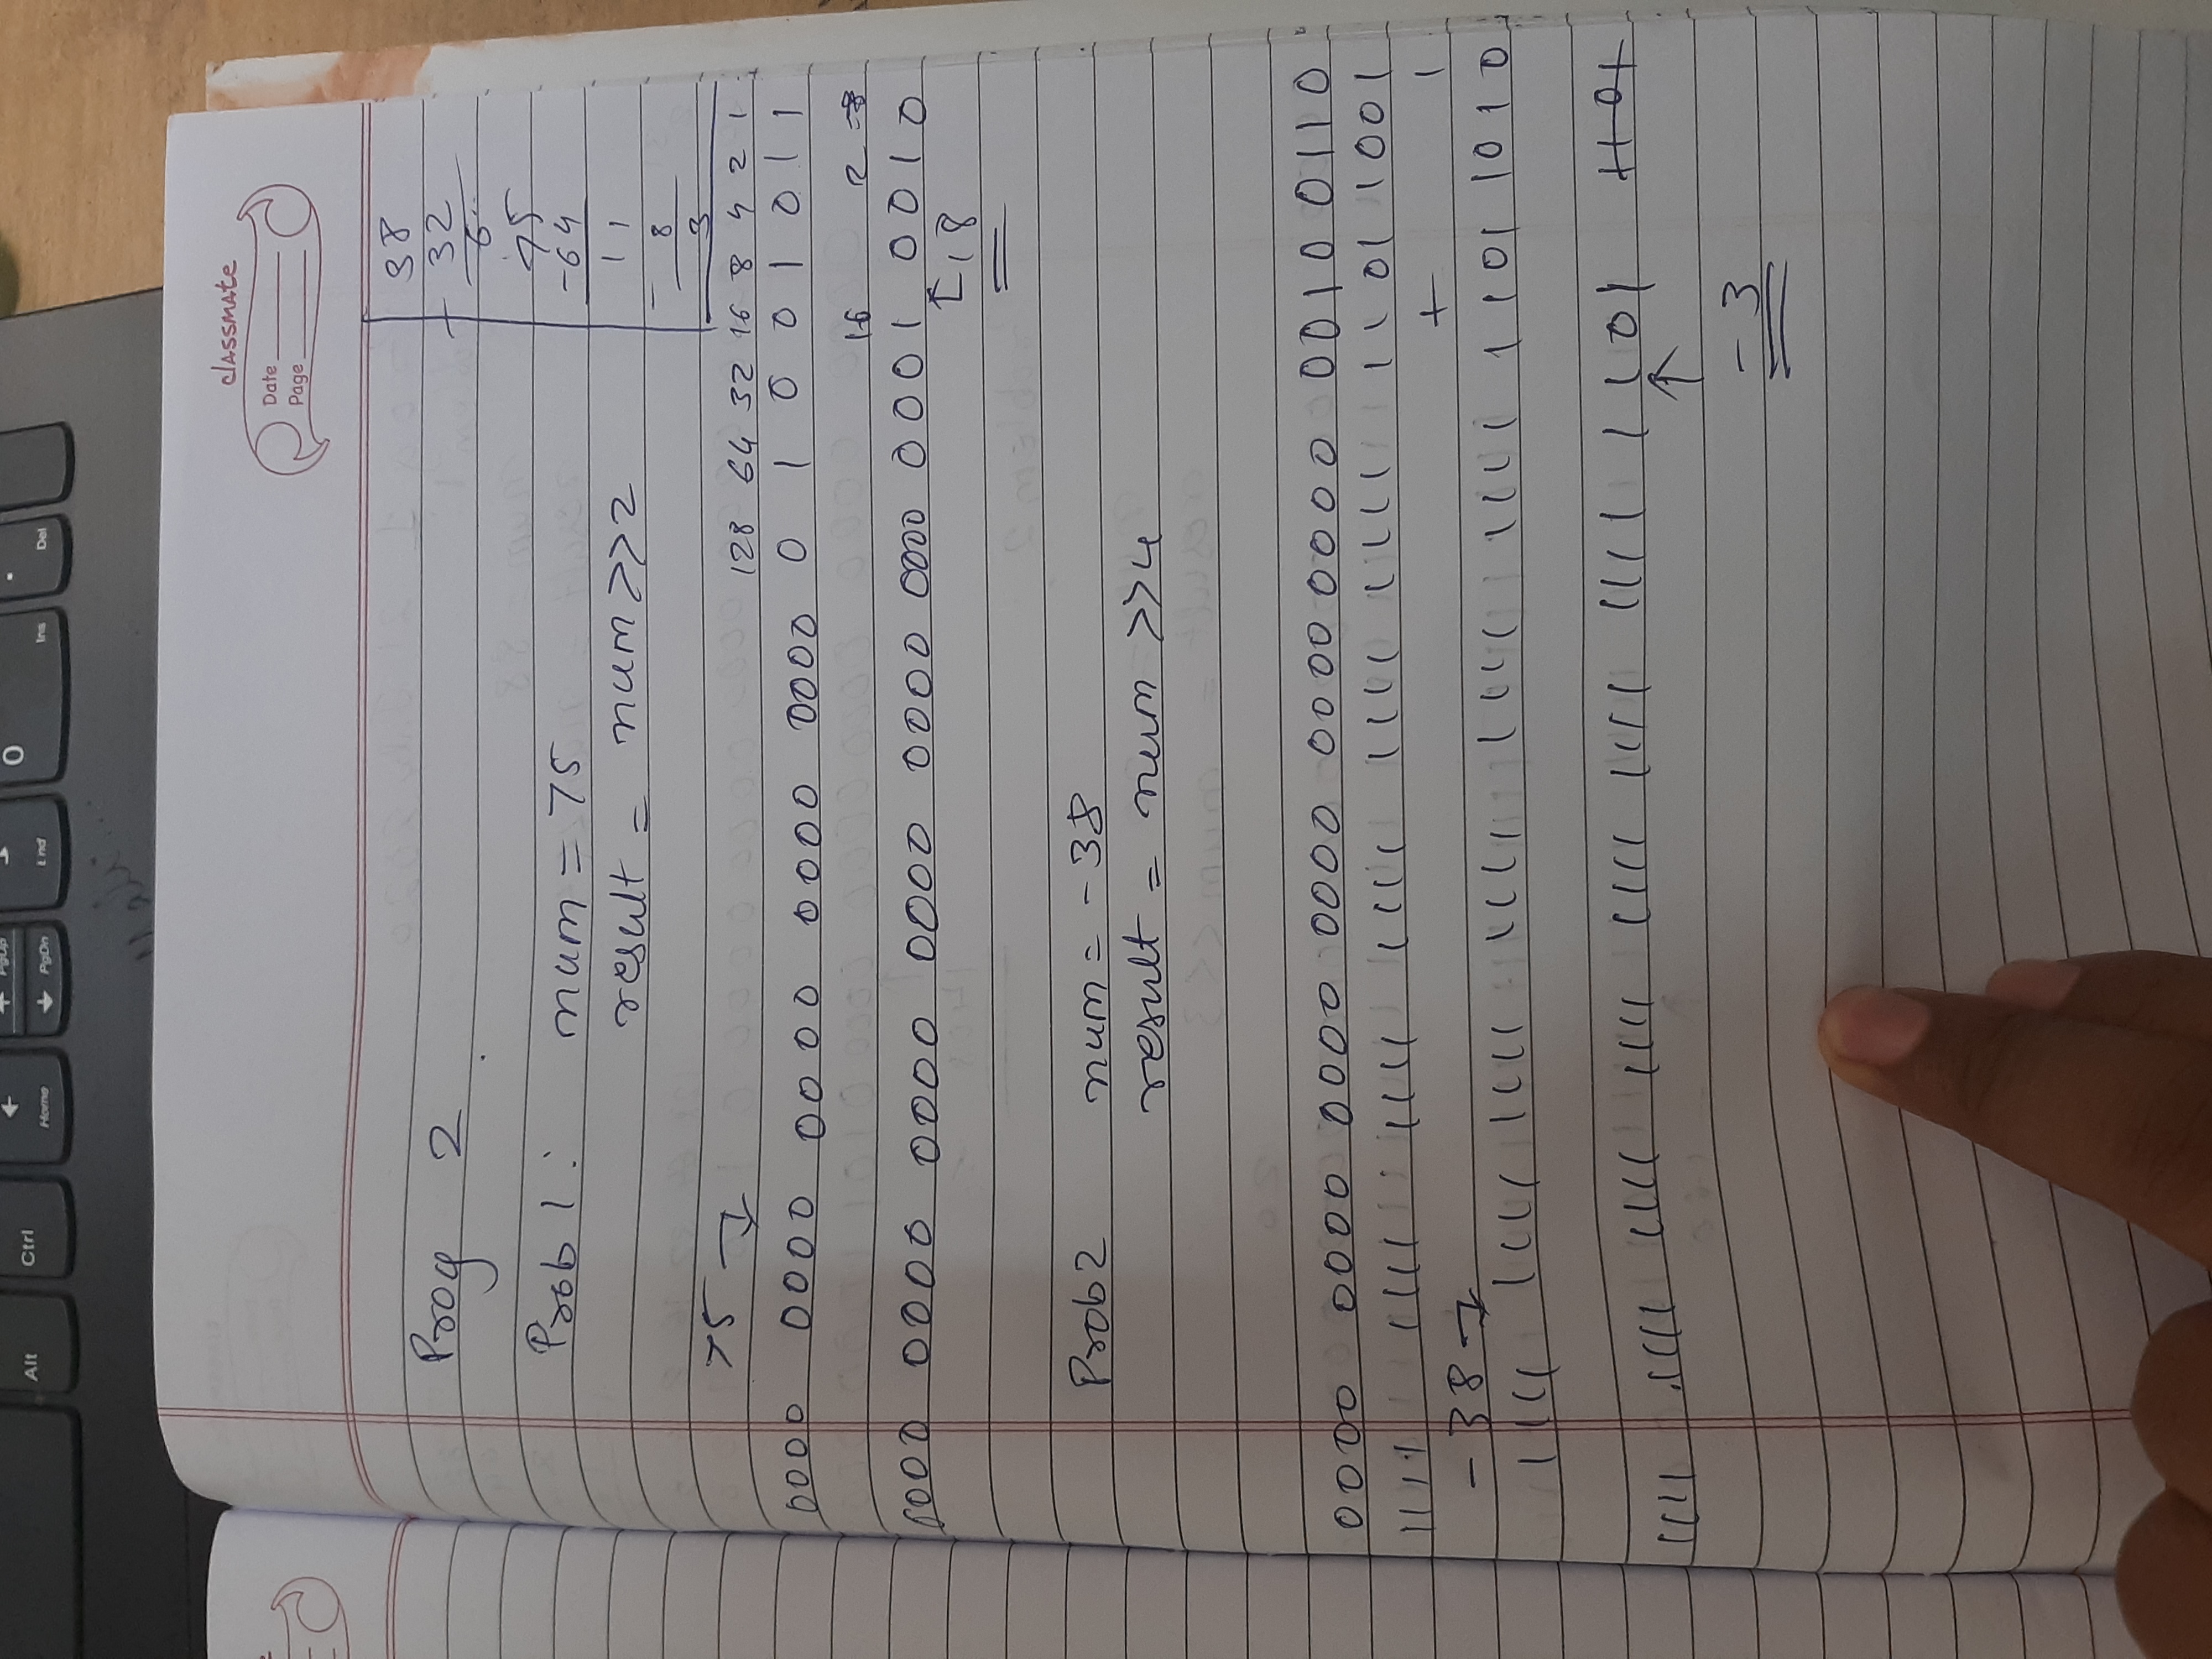 Alt Ctrl Home PgUp PgDn End 0 Ins . Del
classmate
Date
Page
38
- 32
6
75
-64
11
- 8
3
Prog 2
Prob 1: num = 75
result = num >>2
75
128 64 32 16 8 4 2 1
0000 0000 0000 0000 0000 0 1 0 0 1 0 1 1
16 2
0000 0000 0000 0000 0000 0000 0001 0010
18
Prob2 num = -38
result = num >>4
0000 0000 0000 0000 0000 0000 0010 0110
1111 1111 1111 1111 1111 1111 1101 1001
+ 1
-38
1111 1111 1111 1111 1111 1111 1101 1010
1111 1111 1111 1111 1111 1111 1111 1101 1101
-3